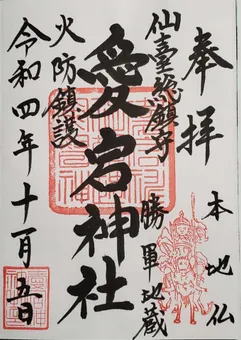 奉拝
本地仏
仙臺総願寺
勝軍地蔵
愛宕神社
火防鎮護
令和四年十一月五日